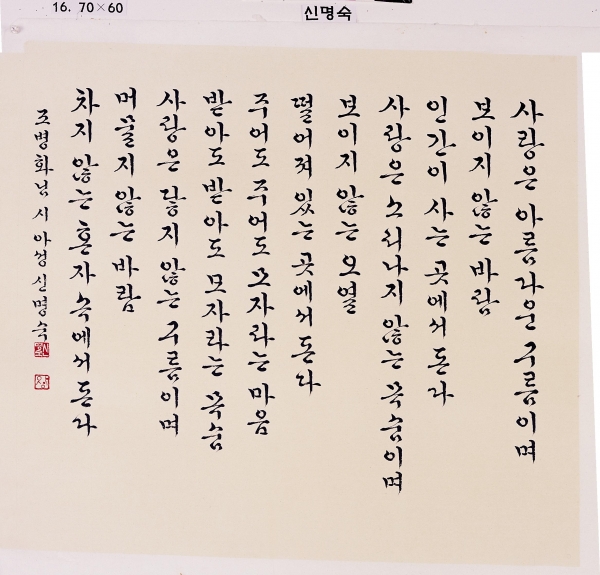 16. 70×60
신명숙
사랑은 아름다운 구름이며
보이지 않는 바람
인간이 사는 곳에서 돈다
사랑은 소리나지 않는 목숨이며
보이지 않는 오열
떨어져 있는 곳에서 돈다
주어도 주어도 모자라는 마음
받아도 받아도 모자라는 목숨
사랑은 닿지 않는 구름이며
머물지 않는 바람
차지 않는 혼자 속에서 돈다
조병화님 시 신명숙